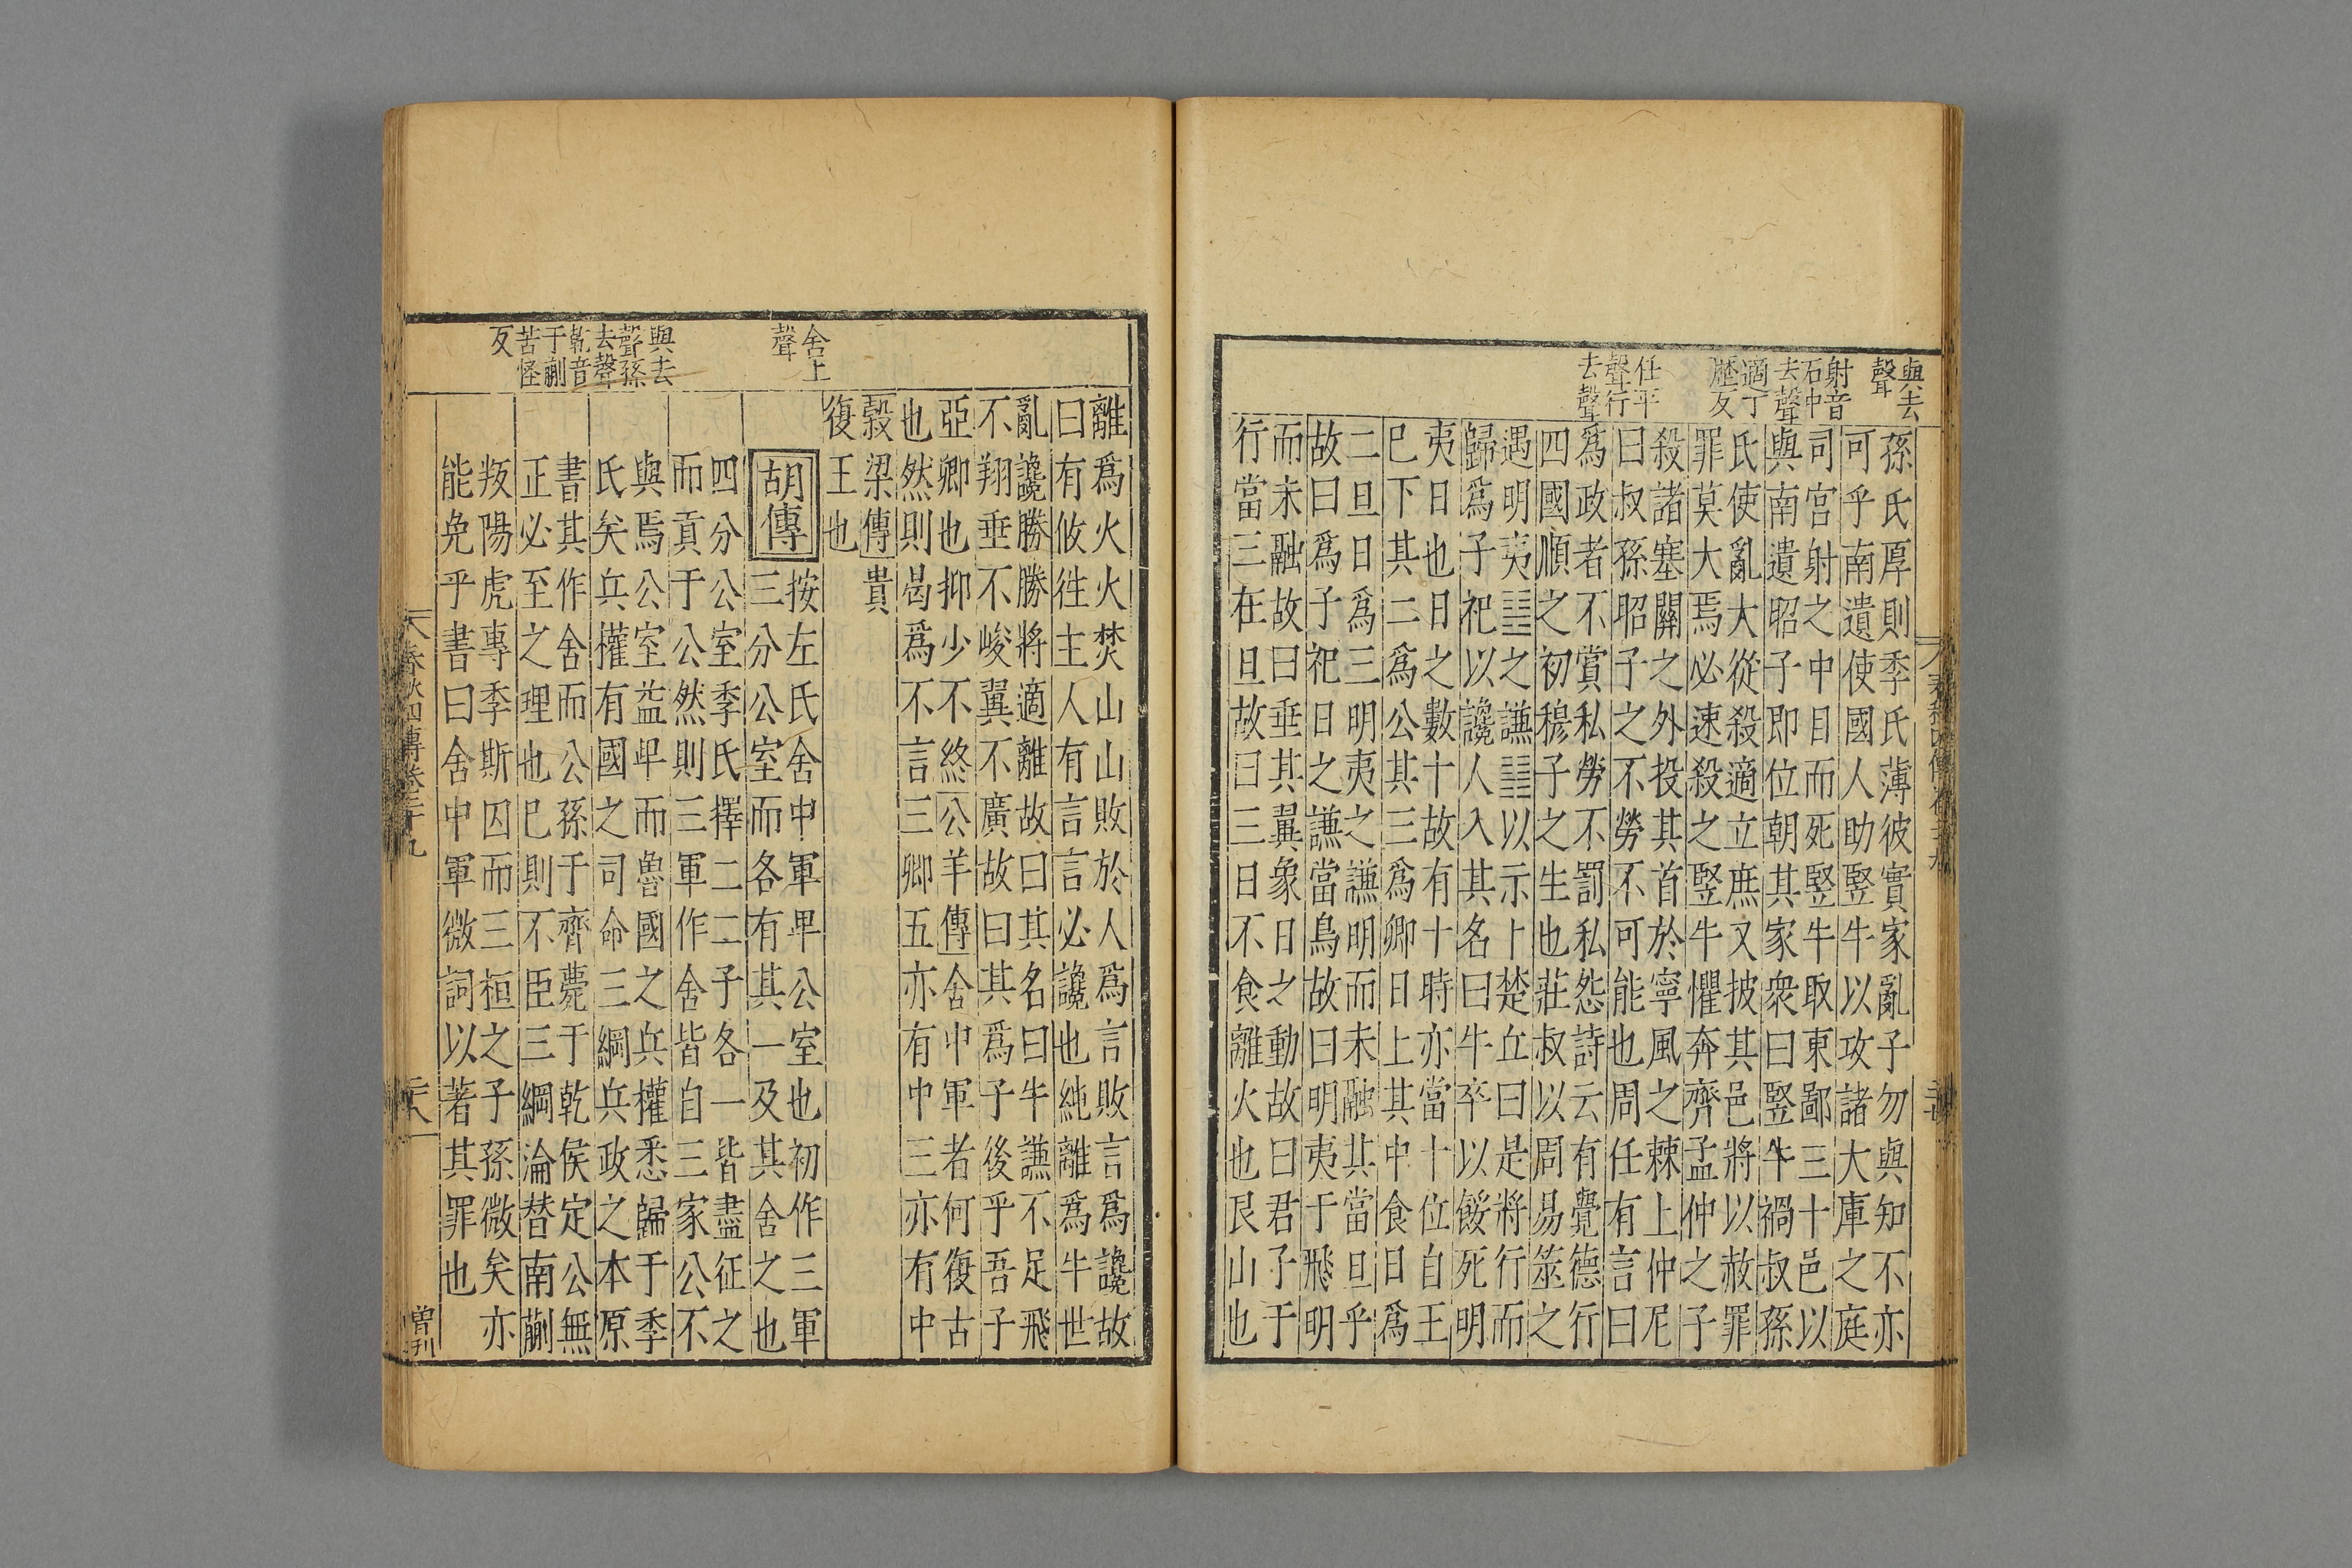 與去
聲
射音
石中
去聲
適丁
歷反
任平
聲行
去聲
孫氏厚則季氏薄彼實家亂子勿與知不亦
可乎南遺使國人助豎牛以攻諸大庫之庭
司宮射之中目而死豎牛取東鄙三十邑以
與南遺昭子即位朝其家衆曰豎牛禍叔孫
氏使亂大從殺適立庶又披其邑將以赦罪
罪莫大焉必速殺之豎牛懼奔齊孟仲之子
殺諸塞關之外投其首於寧風之棘上仲尼
曰叔孫昭子之不勞不可能也周任有言曰
爲政者不賞私勞不罰私怨詩云有覺德行
四國順之初穆子之生也莊叔以周易筮之
遇明夷䷣之謙䷎以示卜楚丘曰是將行而
歸爲子祀以讒人入其名曰牛卒以餒死明
夷日也日之數十故有十時亦當十位自王
已下其二爲公其三爲卿日上其中食日爲
二旦日爲三明夷之謙明而未融其當旦乎
故曰爲子祀日之謙當鳥故曰明夷于飛明
而未融故曰垂其翼象日之動故曰君子于
行當三在旦故曰三日不食離火也艮山也
舍上
聲
與去
聲孫
去聲
乾音
于蒯
苦怪
反
離爲火火焚山山敗於人爲言敗言爲讒故
曰有攸往主人有言言必讒也純離爲牛世
亂讒勝勝將適離故曰其名曰牛謙不足飛
不翔垂不峻翼不廣故曰其爲子後乎吾子
亞卿也抑少不終公羊傳舍中軍者何復古
也然則曷爲不言三卿五亦有中三亦有中
榖梁傳貴
復王也
胡傳
按左氏舍中軍卑公室也初作三軍
三分公室而各有其一及其舍之也
四分公室季氏擇二二子各一皆盡征之
而貢于公公然則三軍作舍皆自三家公不
與焉公室益卑而魯國之兵權悉歸于季
氏矣兵權有國之司命三綱兵政之本原
書其作舍而公孫于齊薨于乾侯定公無
正必至之理也已則不臣三綱淪替南蒯
叛陽虎專季斯囚而三桓之子孫微矣亦
能免乎書曰舍中軍微詞以著其罪也
春秋四傳卷二十九
二十八
曾刊